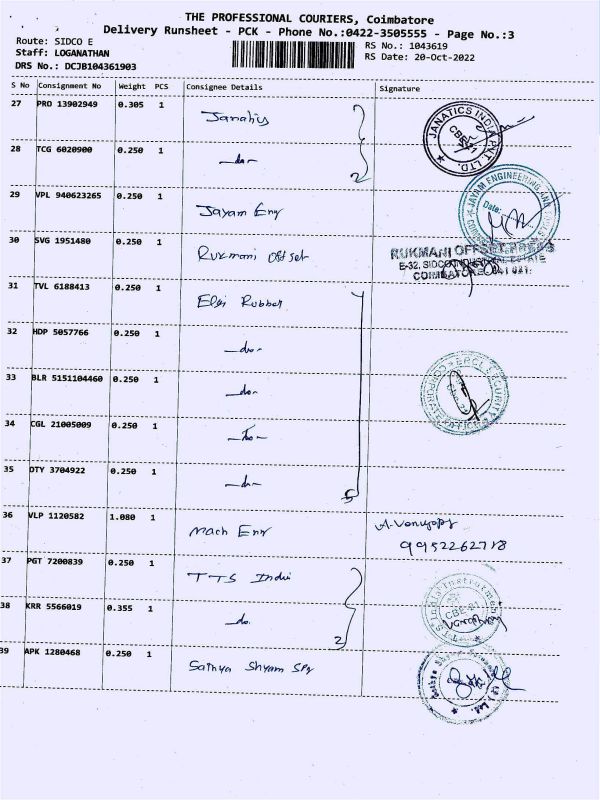 THE PROFESSIONAL COURIERS, Coimbatore
Delivery Runsheet - PCK - Phone No.:0422-3505555 - Page No.:3
Route: SIDCO E
RS No.: 1043619
Staff: LOGANATHAN
RS Date: 20-Oct-2022
DRS No.: DCJB104361903
S No Consignment No Weight PCS Consignee Details Signature
27 PRO 13902949 0.305 1 Janatics
JANATICS INDIA PVT. LTD. CBE
28 TCG 6020900 0.250 1 -do- 2
29 VPL 940623265 0.250 1 Jayam Eng
JAYAM ENGINEERING AND
Date:
30 SVG 1951480 0.250 1 Rukmani Offset
RUKMANI OFFSET PRESS
E-32, SIDCO INDUSTRIAL ESTATE
COIMBATORE-641 021.
31 TVL 6188413 0.250 1 Elgi Rubber
32 HDP 5057766 0.250 1 -do-
33 BLR 5151104460 0.250 1 -do-
SECURITY
34 CGL 21005009 0.250 1 -do-
35 DTY 3704922 0.250 1 -do- 5
36 VLP 1120582 1.080 1 Mach Eng
9952262718
37 PGT 7200839 0.250 1 TTS India
38 KRR 5566019 0.355 1 -do- 2
CBE-21
39 APK 1280468 0.250 1 Sathya Shyam